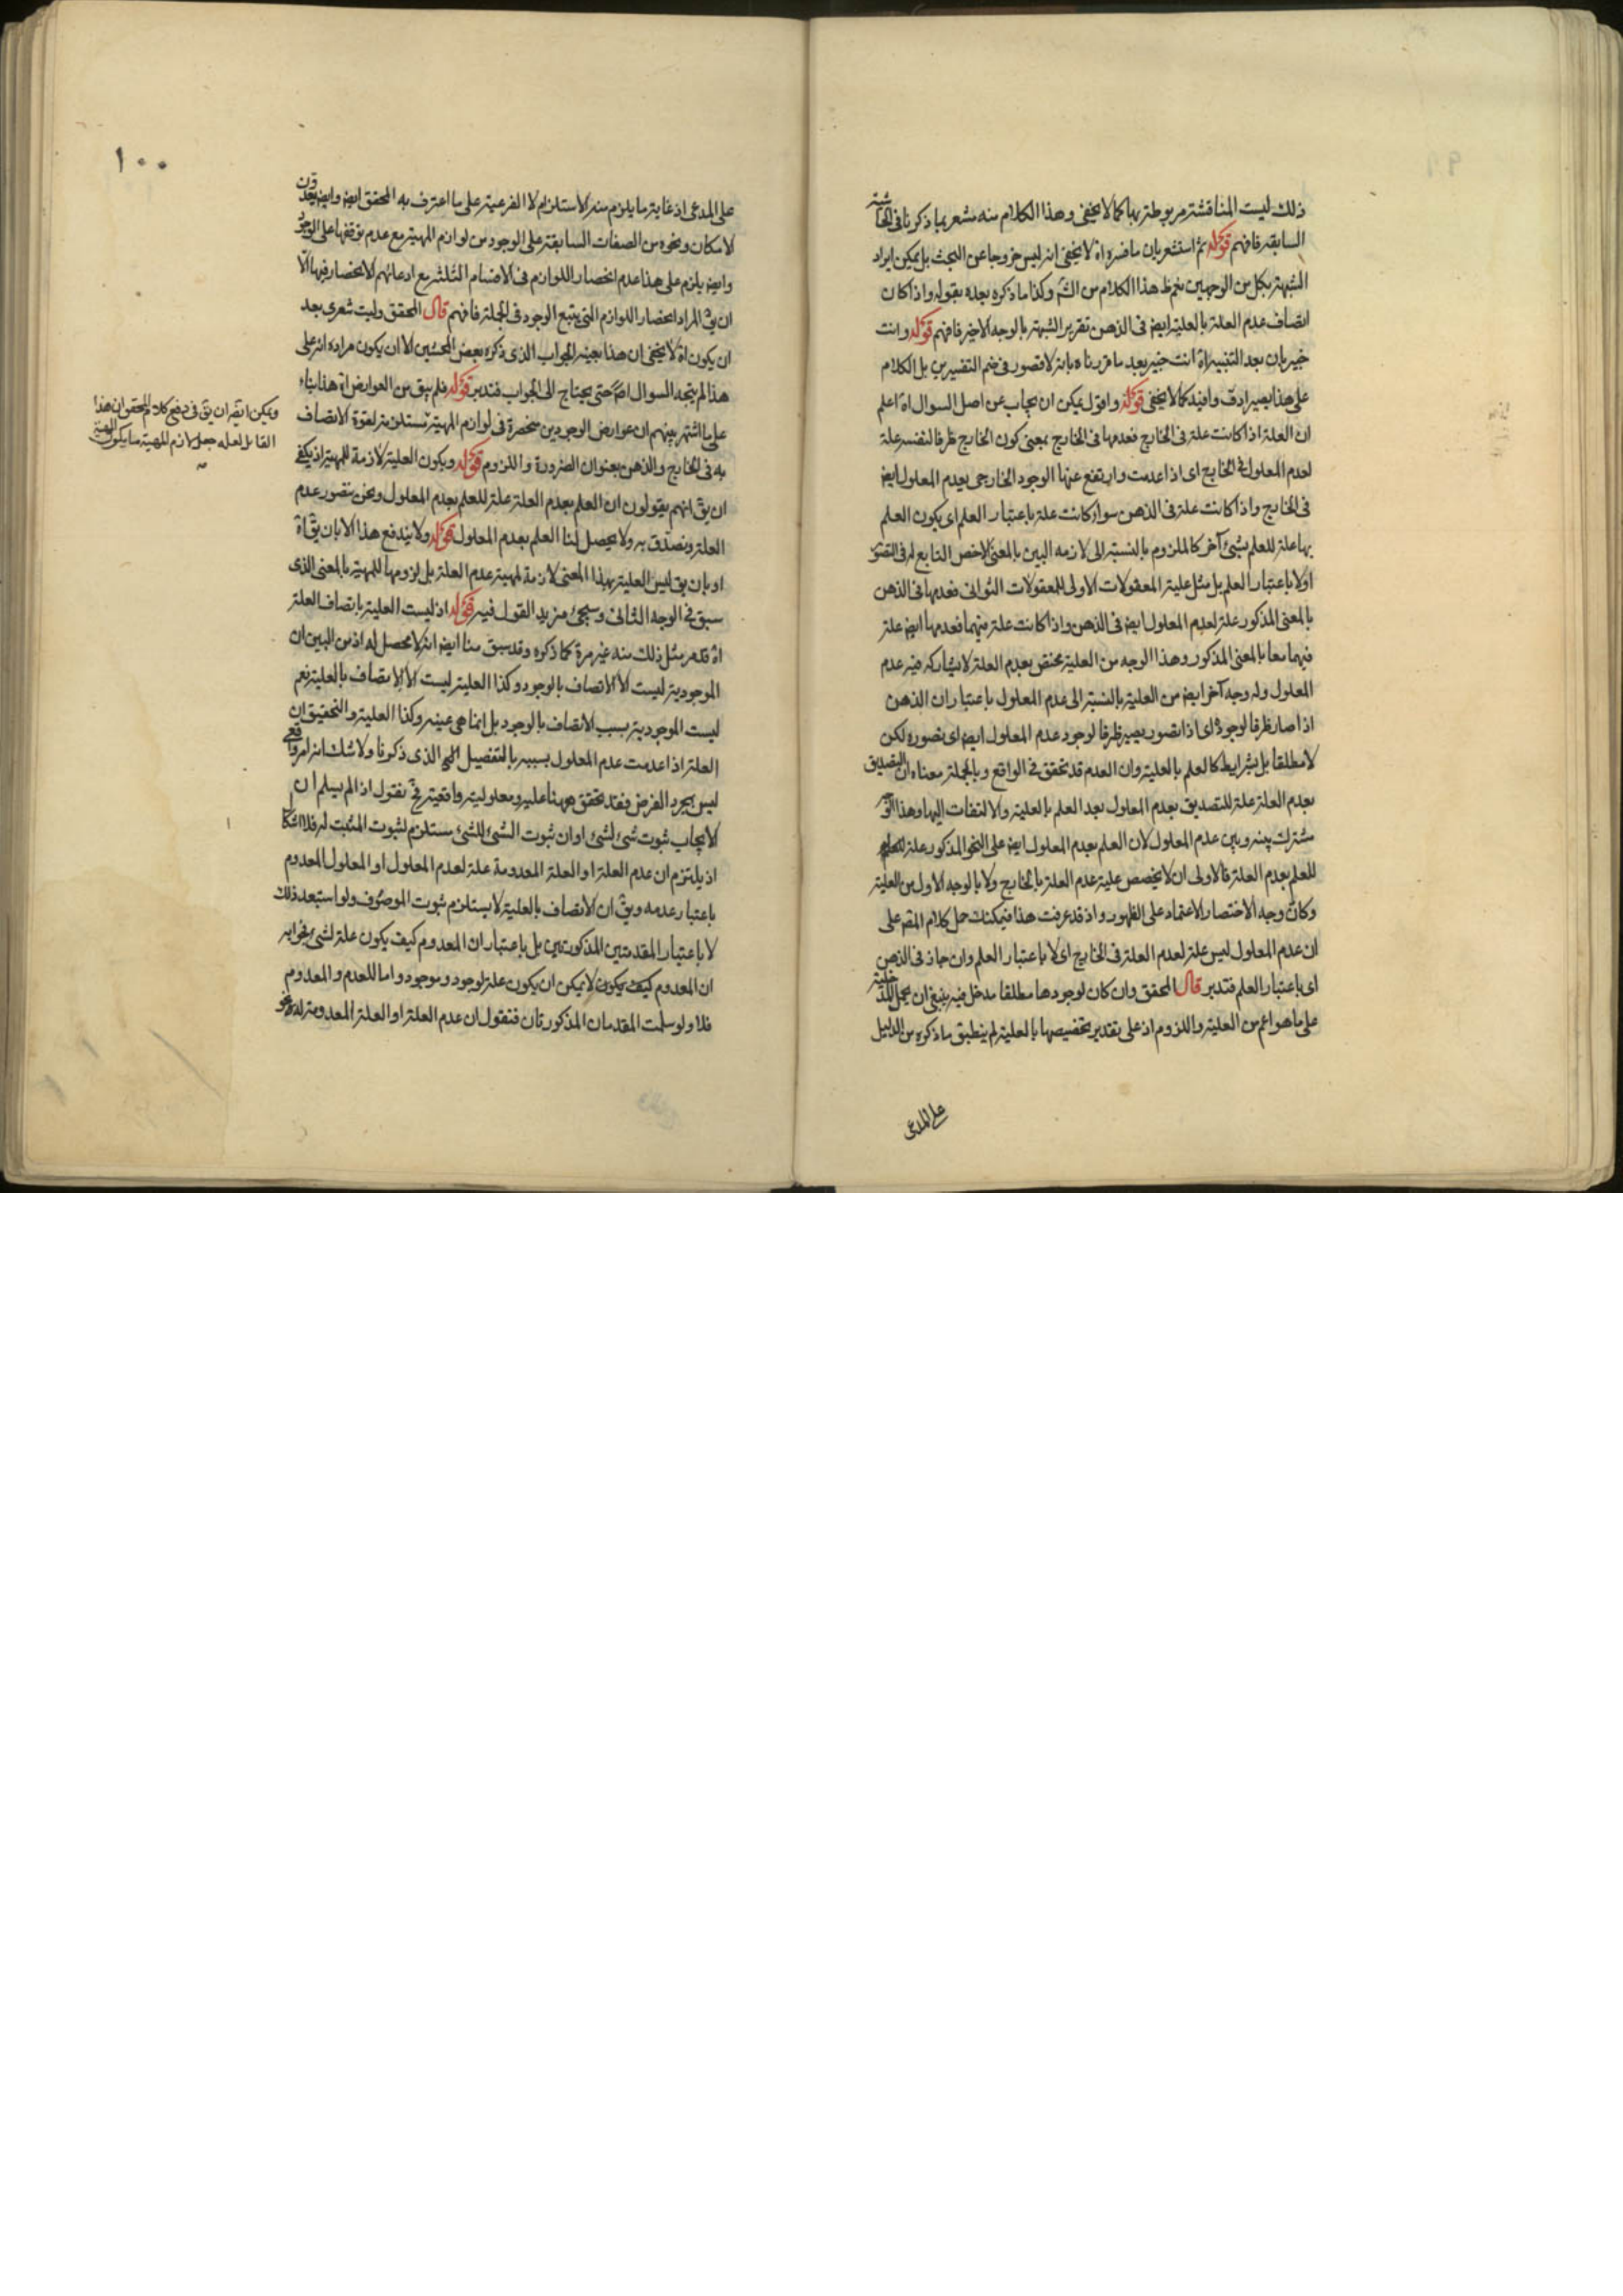 ذلك ليست المناقشة مربوطة بها كما لا يخفى وهذا الكلام منه مشعر بما ذكرنا فى الحاشية
السابقة فافهم قوله ثم استشعر بان ما فسره اه لا يخفى انه ليس خروجا عن البحث بل يمكن ايراد
الشبهة بكل من الوجهين هذا الكلام من الش وكذا ما ذكره بعده بقوله واذا كان
اتصاف عدم العلة بالعلية ايض فى الذهن تقرير الشبهة بالوجه الاخير فافهم قوله وانت
خبير بان بعد التنبيه اه انت خبير بعد ما قررناه بانه لا قصور فى ضم التفسيرين بل الكلام
على هذا يصير ادق وافيد كما لا يخفى قوله واقول يمكن ان يجاب عن اصل السوال اه اعلم
ان العلة اذا كانت علة فى الخارج فعدمها فى الخارج بمعنى كون الخارج ظرفا لنفسه علة
لعدم المعلول فى الخارج اى اذا عدمت وارتفع عنها الوجود الخارجى يعدم المعلول ايض
فى الخارج واذا كانت علة فى الذهن سواء كانت علة باعتبار العلم اى يكون العلم
بها علة للعلم بشئ آخر كالملزوم بالنسبة الى لازمه البين بالمعنى الاخص التابع له فى التصور
اولا باعتبار العلم بل مثل علية المعقولات الاولى للمعقولات الثوانى فعدمها فى الذهن
بالمعنى المذكور علة لعدم المعلول ايض فى الذهن واذا كانت علة فيهما فعدمها ايض علة
فيهما معا بالمعنى المذكور وهذا الوجه من العلية مختص بعدم العلة لا يشاركه فيه عدم
المعلول وله وجه آخر ايض من العلية بالنسبة الى عدم المعلول باعتبار ان الذهن
اذا صار ظرفا لوجوده اى اذا تصور يصير ظرفا لوجود عدم المعلول ايض اى تصوره لكن
لا مطلقا بل بشرايط كالعلم بالعلية وان العدم قد تحقق فى الواقع وبالجملة معناه ان التصديق
بعدم العلة علة للتصديق بعدم المعلول بعد العلم بالعلية والالتفات اليها وهذا
مشترك بينه وبين عدم المعلول لان العلم بعدم المعلول ايض على النحو المذكور علة
للعلم بعدم العلة فالاولى ان لا يخصص علية عدم العلة بالخارج ولا بالوجه الاول من العلية
وكان وجه الاختصار الاعتماد على الظهور واذ قد عرفت هذا فيمكنك حمل كلام المص على
ان عدم المعلول ليس علة لعدم العلة فى الخارج اى لا باعتبار العلم وان جاز فى الذهن
اى باعتبار العلم فتدبر قال المحقق وان كان لوجودها مطلقا مدخل فيه ينبغى ان يحمل المدخلية
على ما هو اعم من العلية واللزوم اذ على تقدير تخصيصها بالعلية لم ينطبق ما ذكره من الدليل
على المدعى
١٠٠
على المدعى اذ غاية ما يلزم منه الاستلزام لا الفرعية على ما اعترف به المحقق ايض وايض يعدون
الامكان ونحوه من الصفات السابقة على الوجود من لوازم المهية مع عدم توقفها على الوجود
وايض يلزم على هذا عدم انحصار اللوازم فى الاقسام الثلثة مع ادعائهم الانحصار فيها الا
ان يق المراد انحصار اللوازم التى يتبع الوجود فى الجملة فافهم قال المحقق وليت شعرى بعد
ان يكون اه لا يخفى ان هذا بعينه الجواب الذى ذكره بعض المحشين الا ان يكون مراده انه على
هذا لم يتجه السوال اص حتى يحتاج الى الجواب فتدبر قوله فلم يبق من العوارض اه هذا بناء
على ما اشتهر بينهم ان عوارض الوجودين منحصرة فى لوازم المهية مستلزمة لقوة الاتصاف
به فى الخارج والذهن بعنوان الضرورة واللزوم قوله ويكون العلية لازمة للمهية اذ يكفى
ان يق انهم يقولون ان العلم بعدم العلة علة للعلم بعدم المعلول ونحن نتصور عدم
العلة ونصدق به ولا يحصل لنا العلم بعدم المعلول قوله ولا يندفع هذا الا بان يق اه
او بان يق ليس العلية بهذا المعنى لازمة لمهية عدم العلة بل لزومها للمهية بالمعنى الذى
سبق فى الوجه الثانى وسيجئ مزيد القول فيه قوله اذ ليست العلية باتصاف العلة
اه قد مر مثل ذلك منه غير مرة كما ذكره وقد سبق منا ايض انه لا محصل له اذ من البين ان
الموجودية ليست الا الاتصاف بالوجود وكذا العلية ليست الا الاتصاف بالعلية نعم
ليست الموجودية بسبب الاتصاف بالوجود بل انما هى عينه وكذا العلية والتحقيق ان
العلة اذا عدمت عدم المعلول بسببه بالتفصيل الذى ذكرنا ولا شك انه امر واقعى
ليس بمجرد الفرض فقد تحقق ههنا علية ومعلولية واقعية فح نقول اذا لم يسلم ان
الايجاب ثبوت شئ لشئ او ان ثبوت الشئ للشئ مستلزم لثبوت المثبت له فلا اشكال
اذ يلتزم ان عدم العلة او العلة المعدومة علة لعدم المعلول او المعلول المعدوم
باعتبار عدمه ويق ان الاتصاف بالعلية لا يستلزم ثبوت الموصوف ولو استبعد ذلك
لا باعتبار المقدمتين المذكورتين بل باعتبار ان المعدوم كيف يكون علة لشئ فجوابه
ان المعدوم كيف يكون لا يمكن ان يكون علة لوجود وموجود واما للعدم والمعدوم
فلا ولو سلمت المقدمتان المذكورتان فنقول ان عدم العلة او العلة المعدومة له نحو
ويمكن ايض ان يق فى دفع كلام المحقق ان هذا
القائل لعله جعل لازم المهية ما يكون المهية